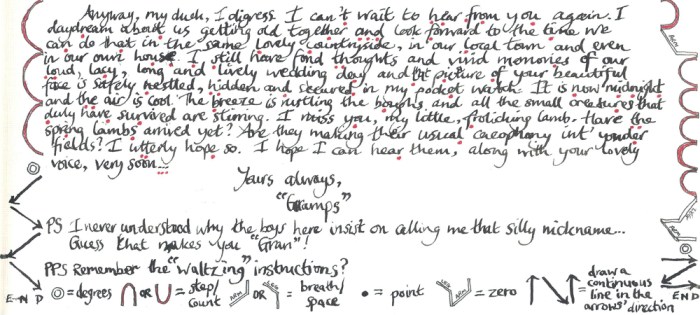 Anyway, my duck, I digress. I can't wait to hear from you again. I
daydream about us getting old together and look forward to the time we
can do that in the same lovely countryside, in our local town and even
in our own house. I still have fond thoughts and vivid memories of our
loud, lacy, long and lively wedding day and the picture of your beautiful
face is safely nestled, hidden and secured in my pocket watch. It is now midnight
and the air is cool. The breeze is rustling the boughs and all the small creatures that
duly have survived are stirring. I miss you, my little, frolicking lamb. Have the
spring lambs arrived yet? Are they making their usual cacophony int' yonder
fields? I utterly hope so. I hope I can hear them, along with your lovely
voice, very soon...
Yours always,
"Gramps"
PS I never understood why the boys here insist on calling me that silly nickname...
Guess that makes you "Gran"!
PPS Remember the "waltzing" instructions?
END = degrees or = step/count ARM ARM or ARM = breath/space = point ARM ARM = zero = draw a continuous line in the arrows' direction END
ARM
ARM
ARM